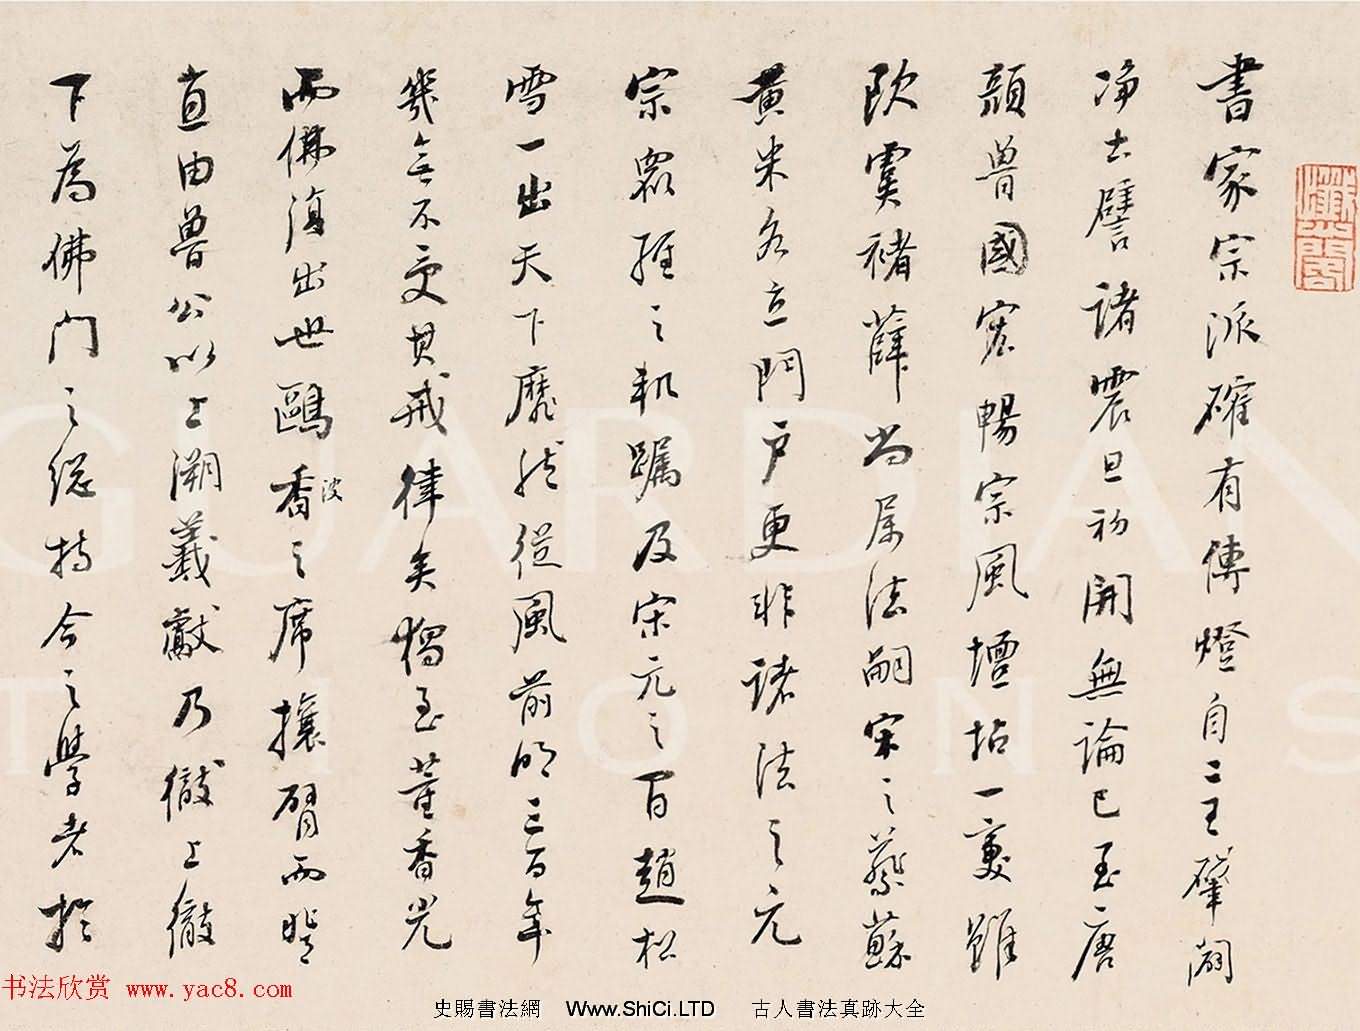 書家宗派確有傳燈自二王肇闢
净土譬諸震旦初開無論已至唐
顏魯國宏暢宗風壇坫一變雖
欧虞褚薛尚属法嗣宋之蔡蘇
黄米各立門戶更非諸法之元
宗之軌躅及宋元之趙松
雪一出天下靡然從風前明三百年
幾無不受其戒律矣獨至董香光
而佛復出世鷗香之席攘臂而登
波
直由魯公以上溯羲獻乃徹上徹
下為佛門之總持今之學者於
GUARDIAN
书法欣赏 www.yac8.com
史賜書法網 Www.ShiCi.LTD 古人書法真跡大全